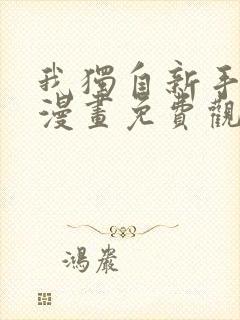 我獨自新手
漫畫免費觀
鴻嚴